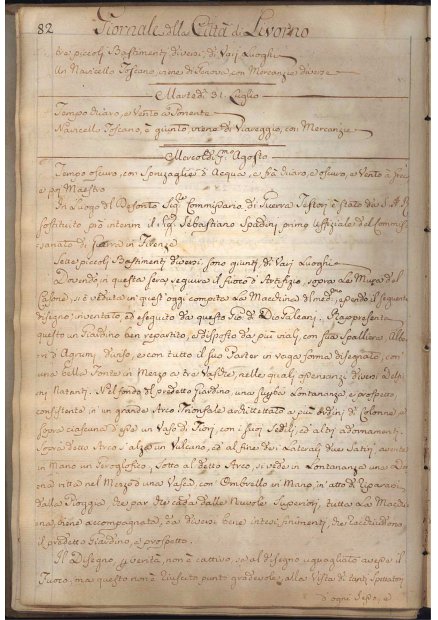 82 Giornali della Città di Livorno
tre piccoli Bastimenti diversi, di Varj Luoghi
Un Navicello Toscano, viene di Genova, con Mercanzie diverse
Martedì 31 Luglio
Tempo chiaro, e Vento a Ponente
Navicello Toscano, è giunto, viene di Viareggio, con Mercanzie
Mercoledì p.mo Agosto
Tempo oscuro, con Spruzzaglie d'Acqua, e frà chiaro, e oscuro, e Vento a
e poi Maestro
In Luogo del Defonto Sig.re Commissario di Guerra Testori è stato da S. A. R.
Sostituito pro interim il Sig.re Sebastiano Spadini primo Ufiziale del Commis-
sariato di Guerra in Firenze
Sette piccoli Bastimenti diversi, sono giunti, di Varj Luoghi
Dovendo in questa sera seguire il fuoco d'Artifizio, sopra le Mura del
Casone, si è veduta in quest'oggi compita la Macchina del med.mo, essendo il seguente
disegno inventato, ed eseguito da questo Gio: di Dio Rappresenta
questo un Giardino ben repartito, e disposto da più viali, con sua Spalliera, Alberi
d'Agrumi diviso, e con tutto il suo Parter in vaga forma disegnato, con
una bella Fonte in Mezzo a tre Vasche, nelle quali diversi
Natanti. Nel fondo del predetto Giardino, una Lontananza e prospetto,
consistente in un grande Arco Trionfale architettato a più Ordini di Colonne, e
sopra ciascune d'esse un Vaso di Fiori, con i suoi Sedili, ed altri adornamenti.
Sopra detto Arco s'alza un Vulcano, ed al fine dei Laterali due Satiri, aventi
in Mano un Geroglifico, Sotto al detto Arco, si vede in Lontananza una
nel Mezzo d'una Vasca, con Ombrello in Mano, in atto di Ripararsi
dalla Pioggia che par che cada dalle Nuvole Superiori, tutta La Machi-
na, viene accompagnata, da diversi bene intesi finimenti, che racchiudono
il predetto Giardino, e prospetto.
Il Disegno p verità, non è cattivo, se al disegno uguagliato avesse il
Fuoco, ma questo non è riuscito punto gradevole, alla Vista di tanti Spettatori
d'ogni Sesso, e